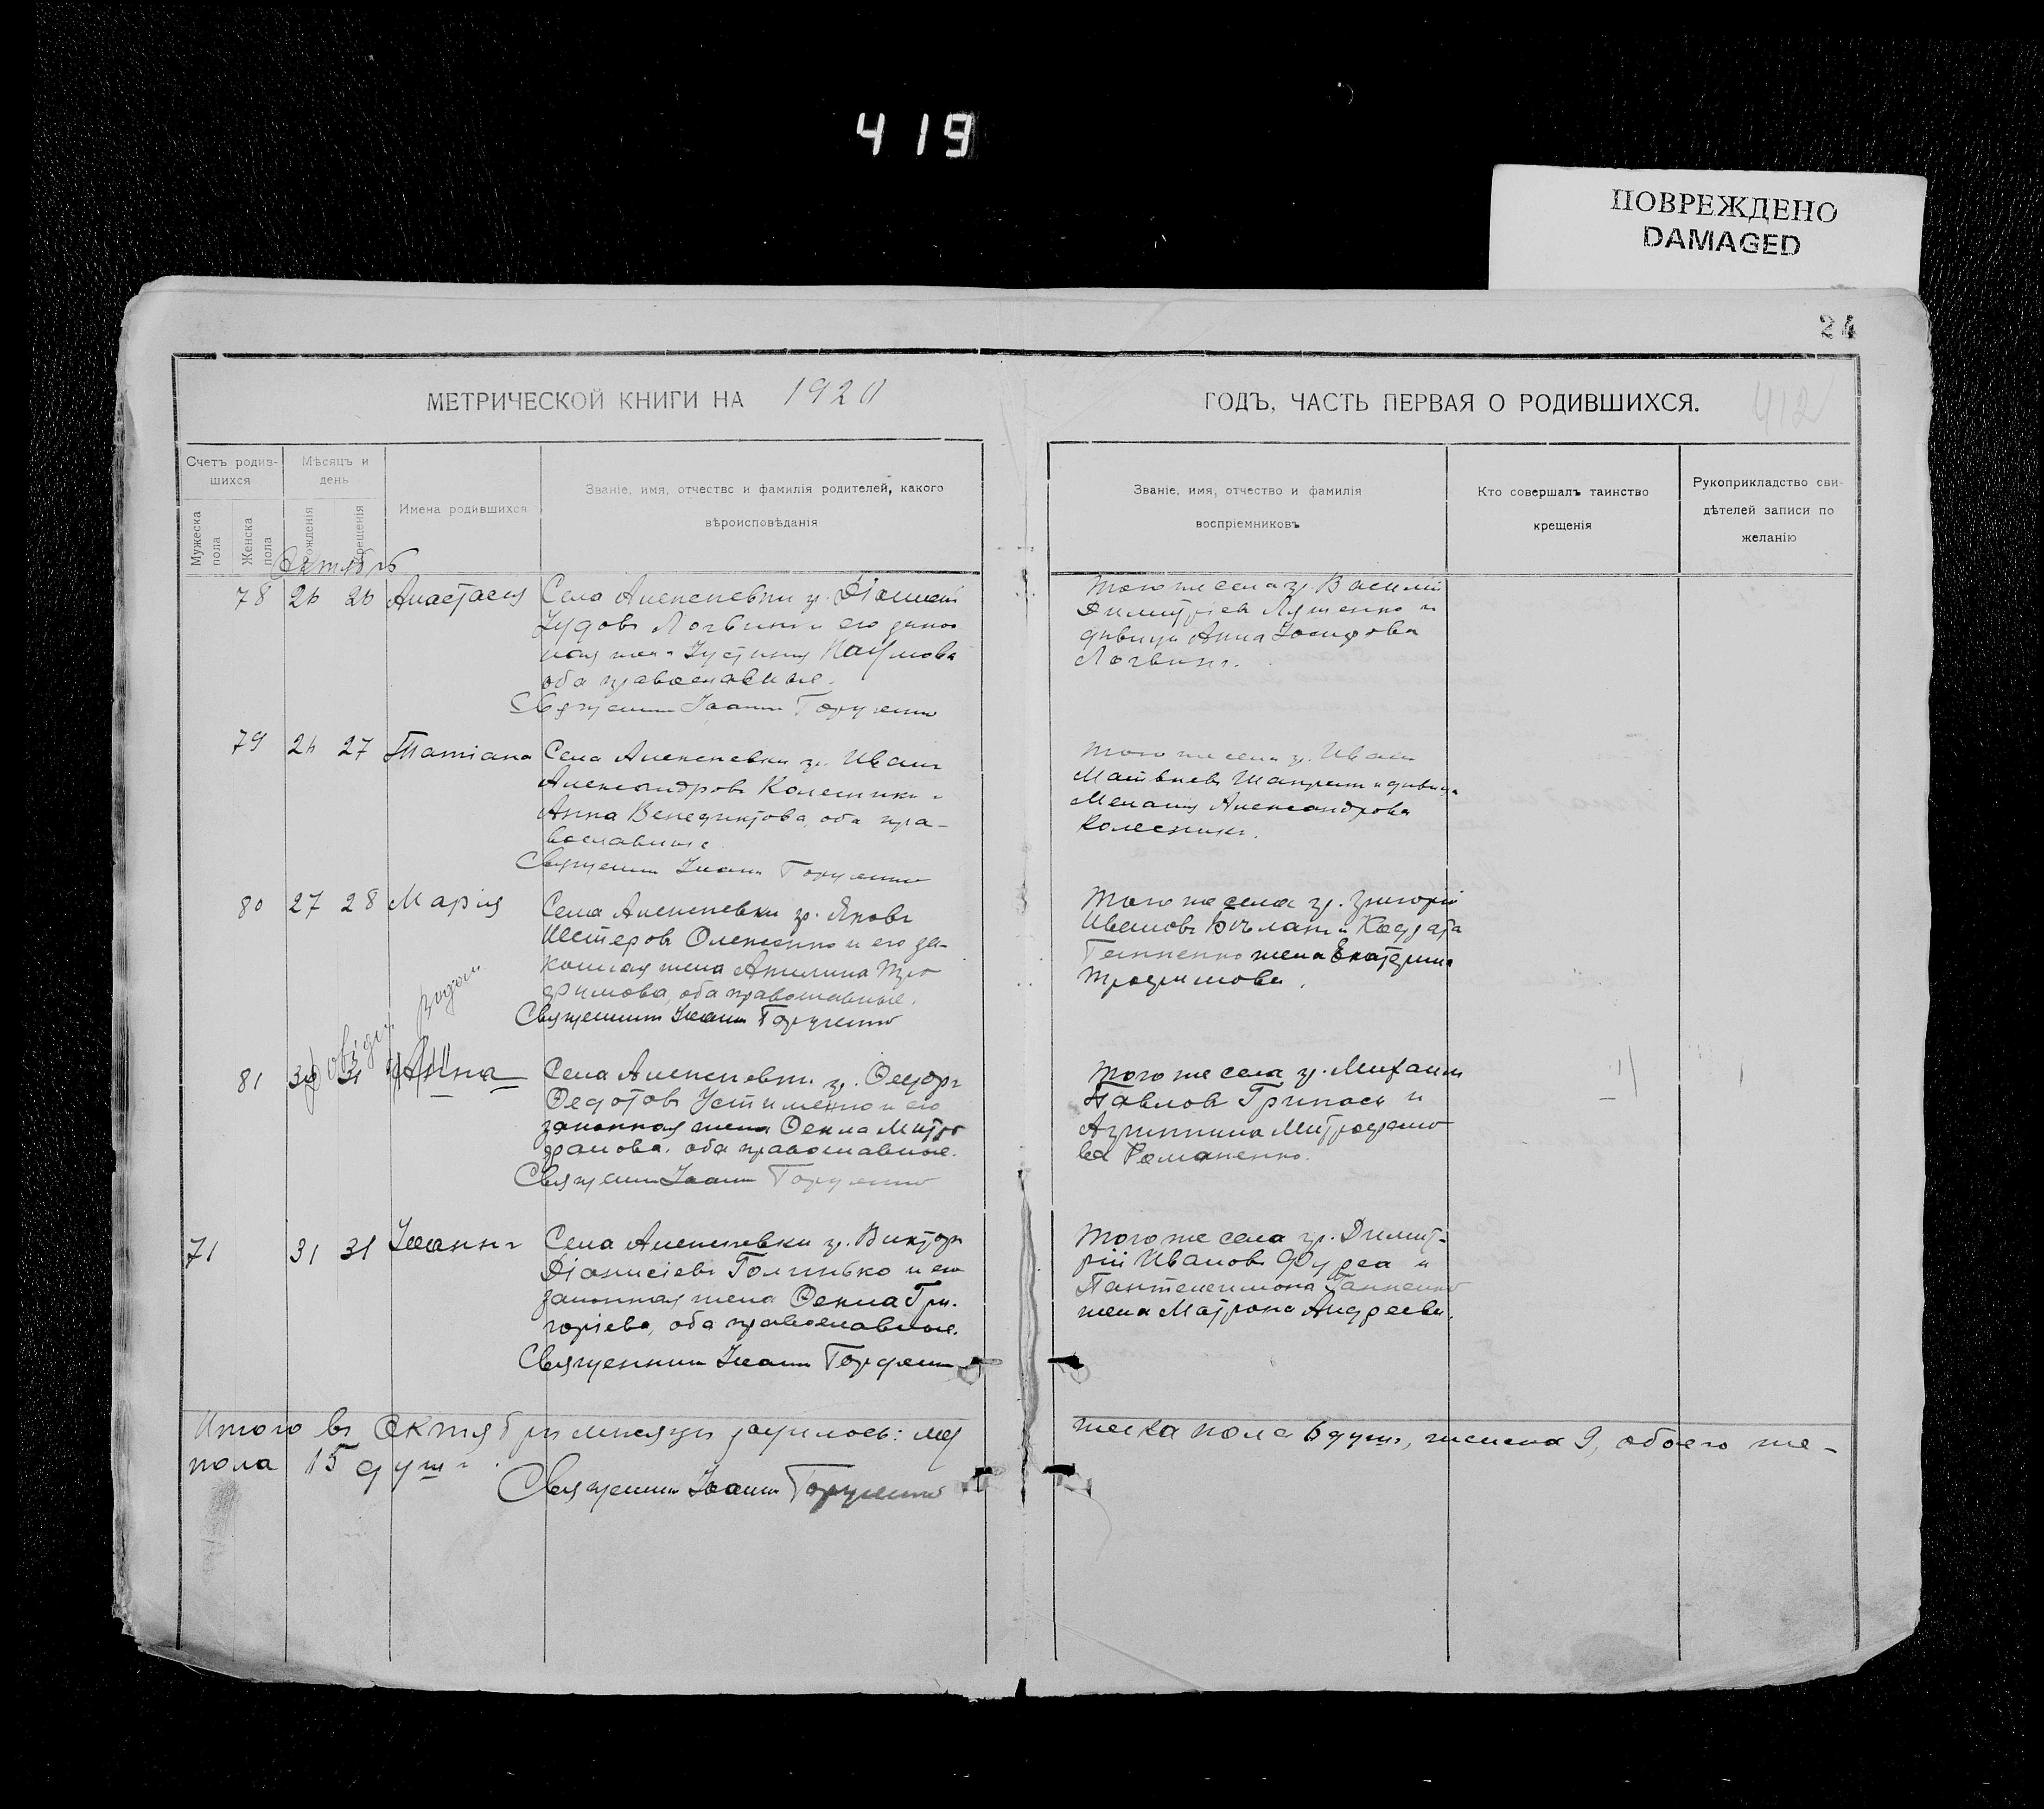 419
ПОВРЕЖДЕНО
DAMAGED
24
МЕТРИЧЕСКОЙ КНИГИ НА 1920
ГОДЪ, ЧАСТЬ ПЕРВАЯ О РОДИВШИХСЯ.
412
Счетъ родив-
шихся
Мужеска
пола
Женска
пола
Мѣсяцъ и
день
рожденія
крещенія
Имена родившихся
Званіе, имя, отчество и фамилія родителей, какого
вѣроисповѣданія
Званіе, имя, отчество и фамилія
воспріемниковъ
Кто совершалъ таинство
крещенія
Рукоприкладство сви-
дѣтелей записи по
желанію
Октябрь
78 26 26 Анастасія Села Алексѣевки гр. Діонисій
Іудовъ Логвинъ и его закон
ная жена Іустинія Наумова
оба православные.
Священникъ Іоаннъ
Того же села гр. Василій
Димитріевъ Ляшенко и
дѣвица Анна Іосифова
Логвинъ.
79 26 27 Татіана Села Алексѣевки гр. Иванъ
Александровъ Колесникъ и
Анна Венедиктова, оба пра-
вославные
Священникъ Іоаннъ
Того же села гр. Иванъ
Матвѣевъ и дѣвица
Меланія Александрова
Колесникъ.
80 27 28 Марія Села Алексѣевки гр. Яковъ
Несторовъ Олексенко и его за-
конная жена Акилина Тро
фимова, оба православные.
Священникъ Іоаннъ
Того же села гр. Григорій
Ивановъ Бѣланъ и
жена Екатерина
Трофимова.
81 30 31 Анна Села Алексѣевки гр. Ѳеодоръ
Ѳедотовъ Устименко и его
законная жена Ѳекла Митро
фанова, оба православные.
Священникъ Іоаннъ
Того же села гр. Михаилъ
Павловъ и
Агриппина Митрофано
ва Романенко.
71 31 31 Іоаннъ Села Алексѣевки гр. Викторъ
Діонисіевъ и его
законная жена Ѳекла Гри-
горіева, оба православные.
Священникъ Іоаннъ
Того же села гр. Димит-
рій Ивановъ Фурса и
Пантелеимона
жена Матрона Андреева.
Итого въ Октябрѣ мѣсяцѣ родилось: муж
жеска пола 6 душъ, женска 9, обоего же-
пола 15 душъ.
Священникъ Іоаннъ